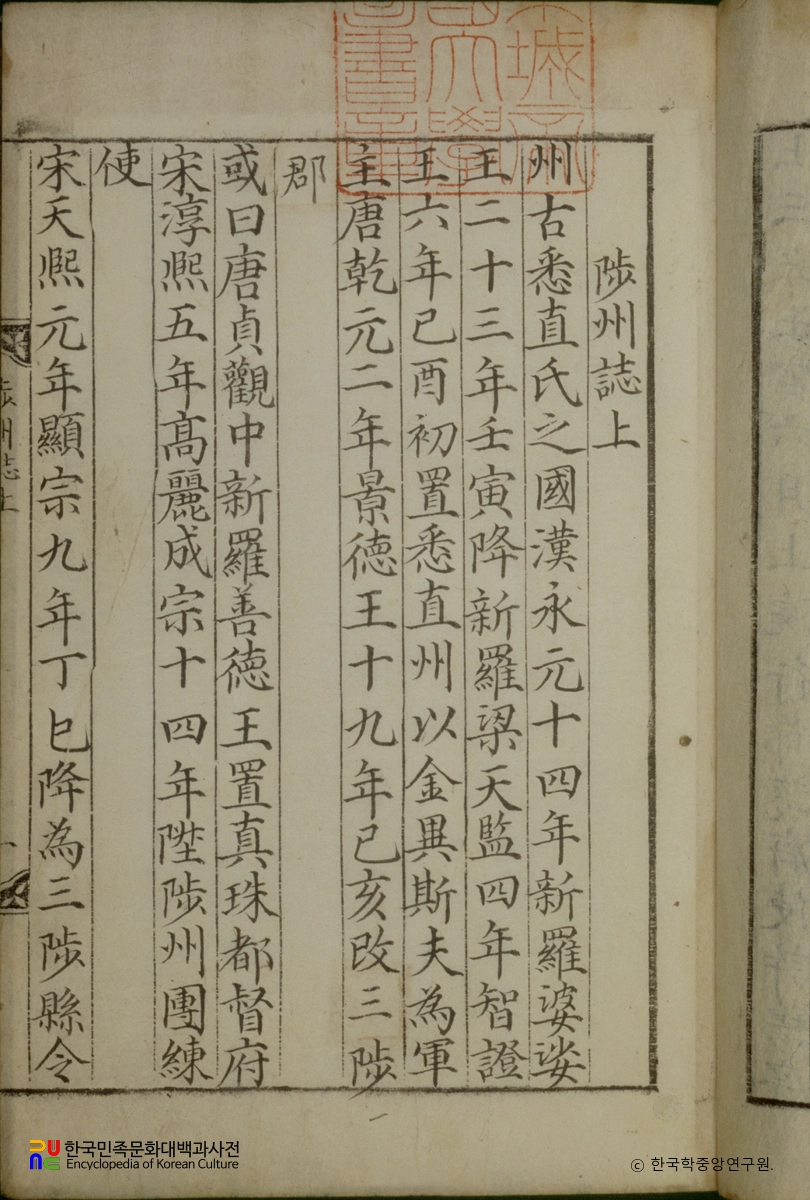 陟州誌上
州古悉直氏之國漢永元十四年新羅婆娑
王二十三年壬寅降新羅梁天監四年智證
王六年己酉初置悉直州以金異斯夫為軍
主唐乾元二年景德王十九年己亥改三陟
郡
或曰唐貞觀中新羅善德王置真珠都督府
宋淳熙五年高麗成宗十四年陞陟州團練
使
宋天熙元年顯宗九年丁巳降為三陟縣令
陟州誌上
한국민족문화대백과사전
Encyclopedia of Korean Culture
© 한국학중앙연구원.